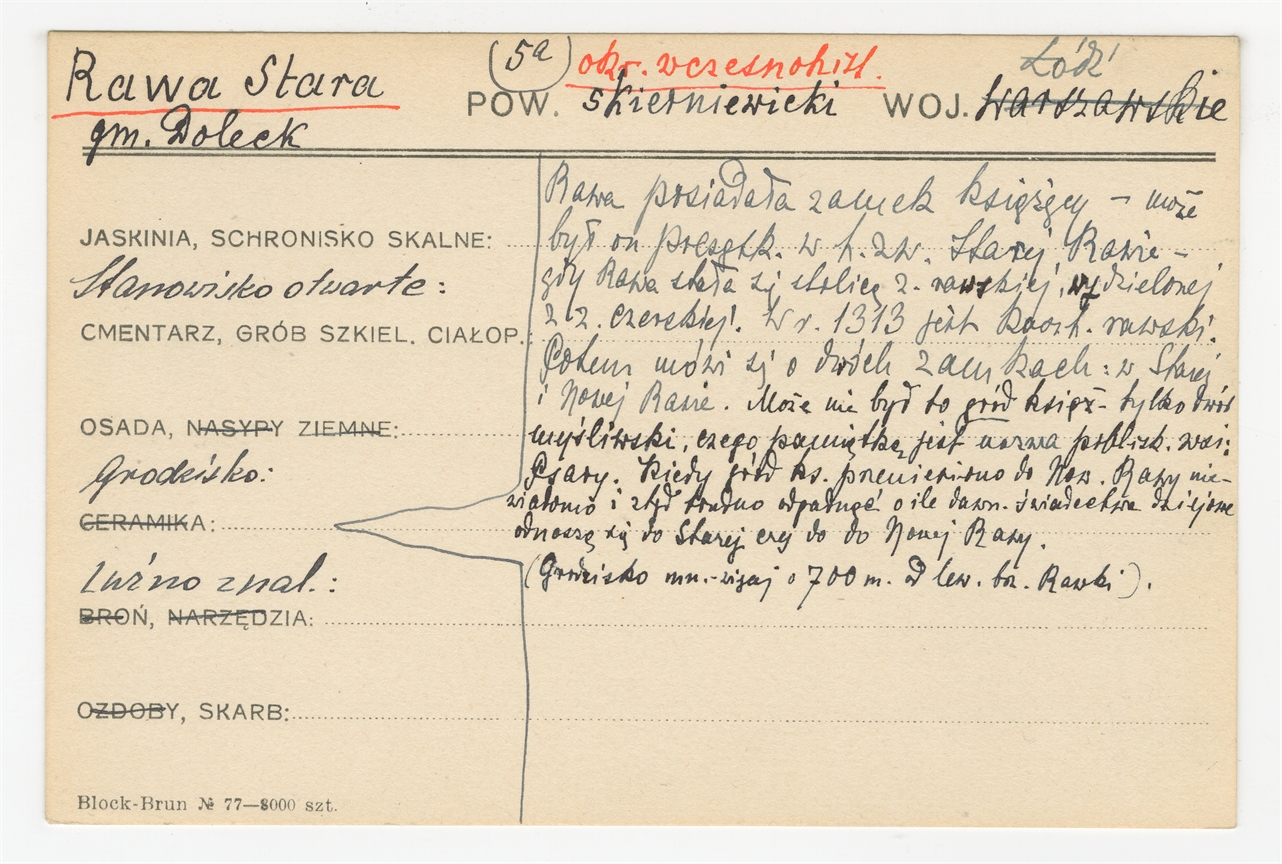 Rawa Stara
gm. Doleck
(5a) okr. wczesnohist.
POW. skierniewicki WOJ. warszawskie
Łódź
Rawa posiadała zamek książęcy – może
był on początk. w t. zw. Starej Rawie –
gdy Rawa stała się stolicą z. rawskiej, wydzielonej
z z. czerskiej. W r. 1313 jest kaszt. rawski.
Potem mówi się o dwóch zamkach: w Starej
i Nowej Rawie. Może nie był to gród książ- tylko dwór
myśliwski, czego pamiątką jest nazwa poblisk. wsi:
Psary. Kiedy gród ks. przeniesiono do Now. Rawy nie-
wiadomo i stąd trudno odgadnąć o ile dawn. świadectwa dziejowe
odnoszą się do Starej czy do do Nowej Rawy.
(Grodzisko mn.-więcej o 700 m. od lew. brz. Rawki).
JASKINIA, SCHRONISKO SKALNE:
Stanowisko otwarte:
CMENTARZ, GRÓB SZKIEL. CIAŁOP.:
OSADA, NASYPY ZIEMNE:
Grodzisko:
CERAMIKA:
Luźno znal.:
BROŃ, NARZĘDZIA:
OZDOBY, SKARB:
Block-Brun № 77—8000 szt.